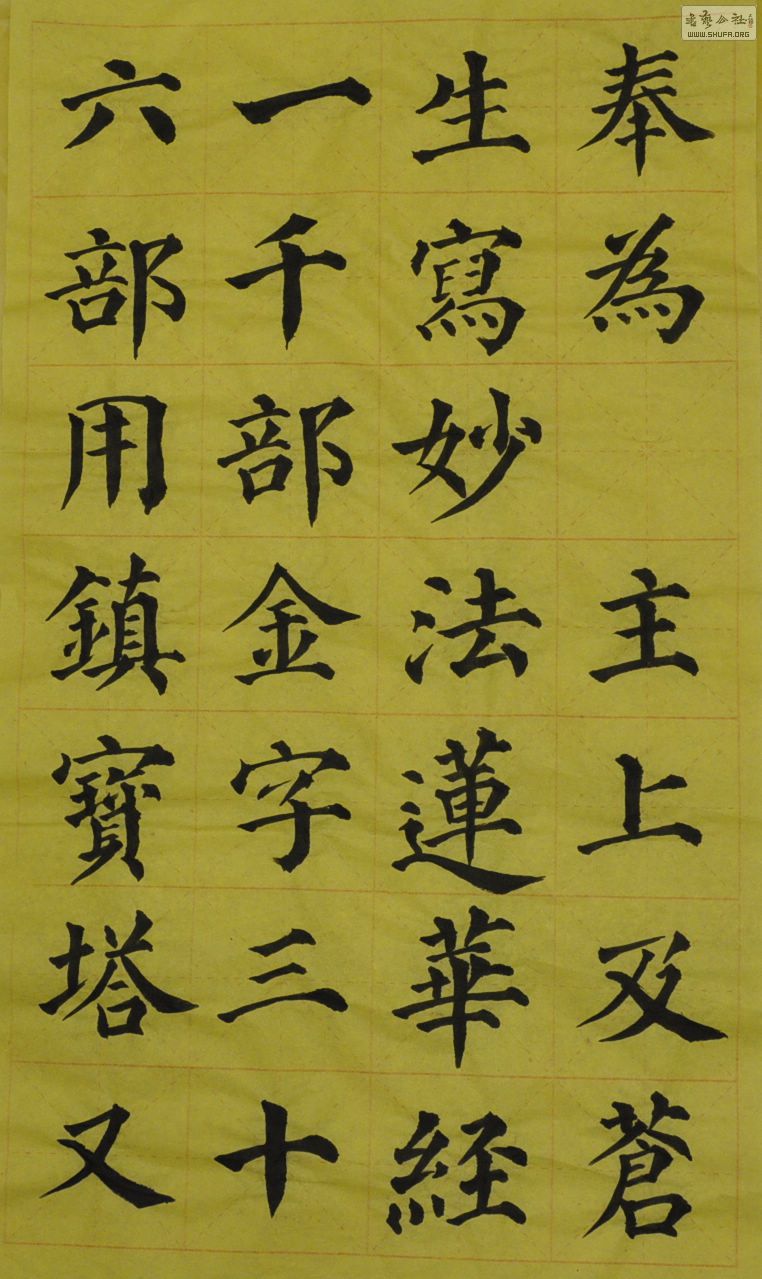 奉為　主上及蒼
生寫妙法蓮華經
一千部金字三十
六部用鎮寶塔又
書藝公社
WWW.SHUFA.ORG